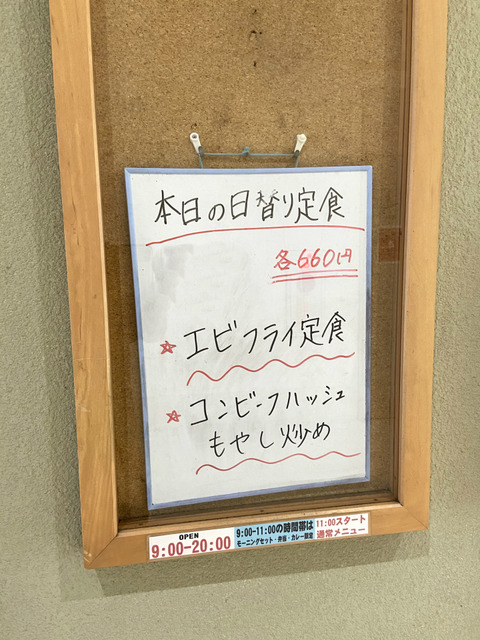 本日の日替り定食
各660円
☆エビフライ定食
☆コンビーフハッシュ
もやし炒め
OPEN
9:00-20:00
9:00-11:00の時間帯は
モーニングセット・弁当・カレー限定
11:00スタート
通常メニュー